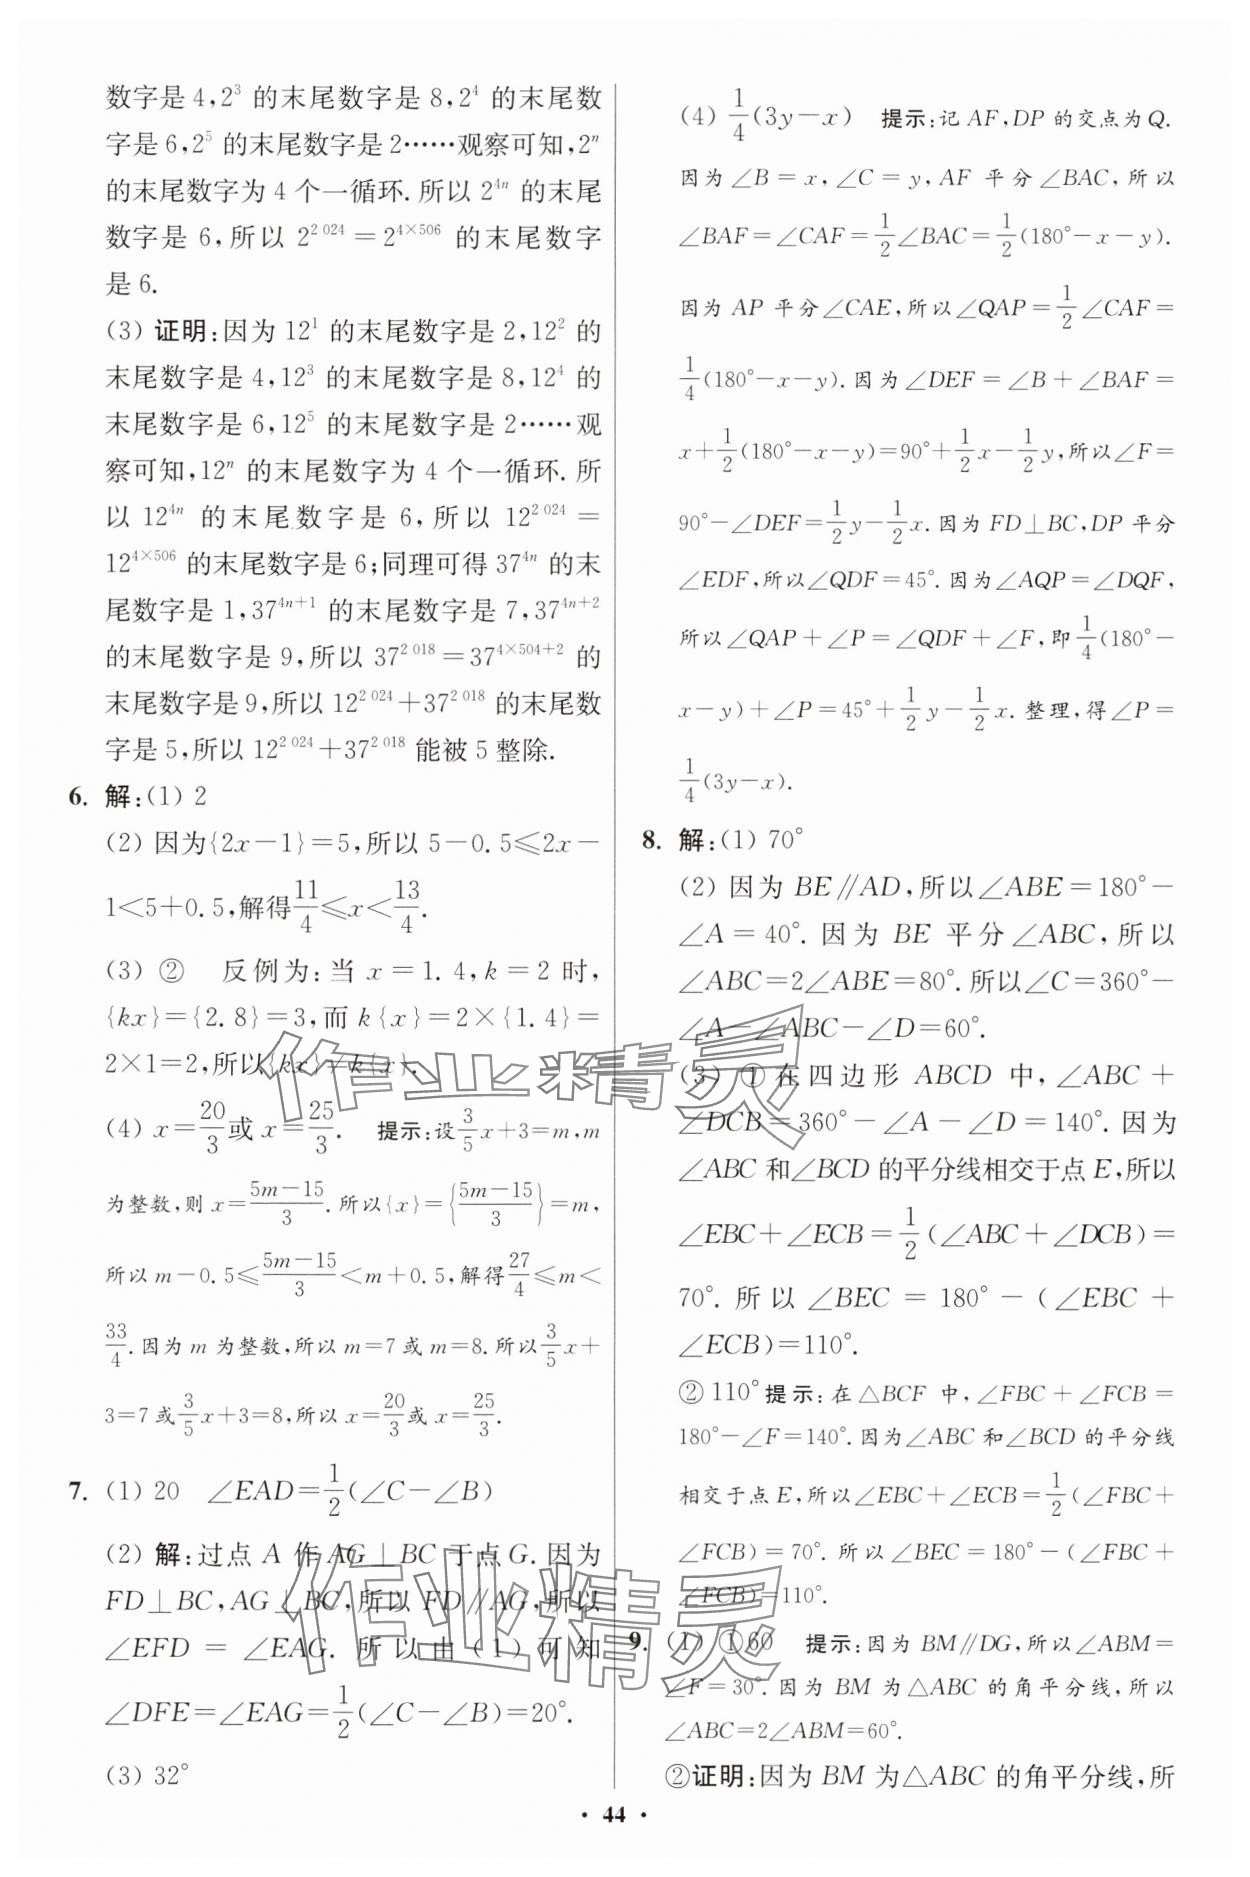 数字是 4,2³ 的末尾数字是 8,2⁴ 的末尾数
字是 6,2⁵ 的末尾数字是 2……观察可知,2ⁿ
的末尾数字为 4 个一循环.所以 2⁴ⁿ 的末尾
数字是 6,所以 2^{2 024}=2^{4×506} 的末尾数字
是 6.
(3) 证明:因为 12¹ 的末尾数字是 2,12² 的
末尾数字是 4,12³ 的末尾数字是 8,12⁴ 的
末尾数字是 6,12⁵ 的末尾数字是 2……观
察可知,12ⁿ 的末尾数字为 4 个一循环.所
以 12⁴ⁿ 的末尾数字是 6,所以 12^{2 024}=
12^{4×506} 的末尾数字是 6;同理可得 37⁴ⁿ 的末
尾数字是 1,37^{4n+1} 的末尾数字是 7,37^{4n+2}
的末尾数字是 9,所以 37^{2 018}=37^{4×504+2} 的
末尾数字是 9,所以 12^{2 024}+37^{2 018} 的末尾数
字是 5,所以 12^{2 024}+37^{2 018} 能被 5 整除.
6. 解:(1) 2
(2) 因为{2x-1}=5,所以 5-0.5≤2x-
1<5+0.5,解得11/4≤x<13/4.
(3) ② 反例为:当 x=1.4,k=2 时,
{kx}={2.8}=3,而 k{x}=2×{1.4}=
2×1=2,所以{kx}≠k{x}.
(4) x=20/3或 x=25/3. 提示:设3/5x+3=m,m
为整数,则 x=(5m-15)/3.所以{x}={(5m-15)/3}=m,
所以 m-0.5≤(5m-15)/3<m+0.5,解得27/4≤m<
33/4.因为 m 为整数,所以 m=7 或 m=8.所以3/5x+
3=7 或3/5x+3=8,所以 x=20/3或 x=25/3.
7. (1) 20 ∠EAD=1/2(∠C-∠B)
(2) 解:过点 A 作 AG⊥BC 于点 G.因为
FD⊥BC,AG⊥BC,所以 FD∥AG,所以
∠EFD=∠EAG.所以由(1)可知
∠DFE=∠EAG=1/2(∠C-∠B)=20°.
(3) 32°
(4) 1/4(3y-x) 提示:记 AF,DP 的交点为 Q.
因为∠B=x,∠C=y,AF 平分∠BAC,所以
∠BAF=∠CAF=1/2∠BAC=1/2(180°-x-y).
因为 AP 平分∠CAE,所以∠QAP=1/2∠CAF=
1/4(180°-x-y).因为∠DEF=∠B+∠BAF=
x+1/2(180°-x-y)=90°+1/2x-1/2y,所以∠F=
90°-∠DEF=1/2y-1/2x.因为 FD⊥BC,DP 平分
∠EDF,所以∠QDF=45°.因为∠AQP=∠DQF,
所以∠QAP+∠P=∠QDF+∠F,即1/4(180°-
x-y)+∠P=45°+1/2y-1/2x.整理,得∠P=
1/4(3y-x).
8. 解:(1) 70°
(2) 因为 BE∥AD,所以∠ABE=180°-
∠A=40°.因为 BE 平分∠ABC,所以
∠ABC=2∠ABE=80°.所以∠C=360°-
∠A-∠ABC-∠D=60°.
(3) ①在四边形 ABCD 中,∠ABC+
∠DCB=360°-∠A-∠D=140°.因为
∠ABC 和∠BCD 的平分线相交于点 E,所以
∠EBC+∠ECB=1/2(∠ABC+∠DCB)=
70°.所以∠BEC=180°-(∠EBC+
∠ECB)=110°.
②110°提示:在△BCF 中,∠FBC+∠FCB=
180°-∠F=140°.因为∠ABC 和∠BCD 的平分线
相交于点 E,所以∠EBC+∠ECB=1/2(∠FBC+
∠FCB)=70°.所以∠BEC=180°-(∠FBC+
∠FCB)=110°.
9. (1) ①60 提示:因为 BM∥DG,所以∠ABM=
∠F=30°.因为 BM 为△ABC 的角平分线,所以
∠ABC=2∠ABM=60°.
②证明:因为 BM 为△ABC 的角平分线,所
· 44 ·
作业精灵
作业精灵